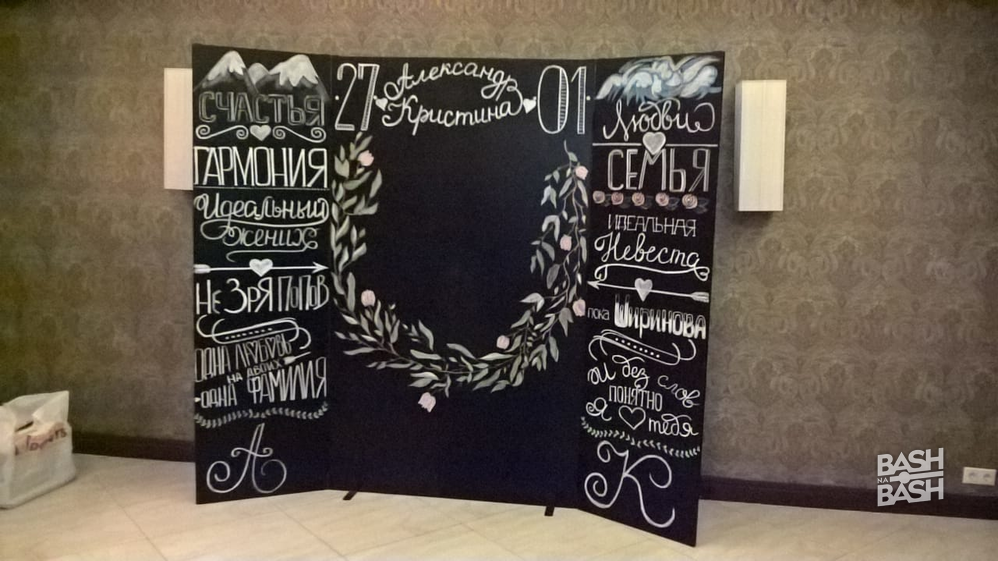 СЧАСТЬЯ
ГАРМОНИЯ
Идеальный
жених
Не Зря Попов
ОДНА ЛЮБОВЬ
НА ДВОИХ
ОДНА ФАМИЛИЯ
А
27 Александр 01
Кристина
Любви
СЕМЬЯ
ИДЕАЛЬНАЯ
Невеста
пока Ширинова
И без слов
понятно
Я тебя
К
BASH
NA
BASH